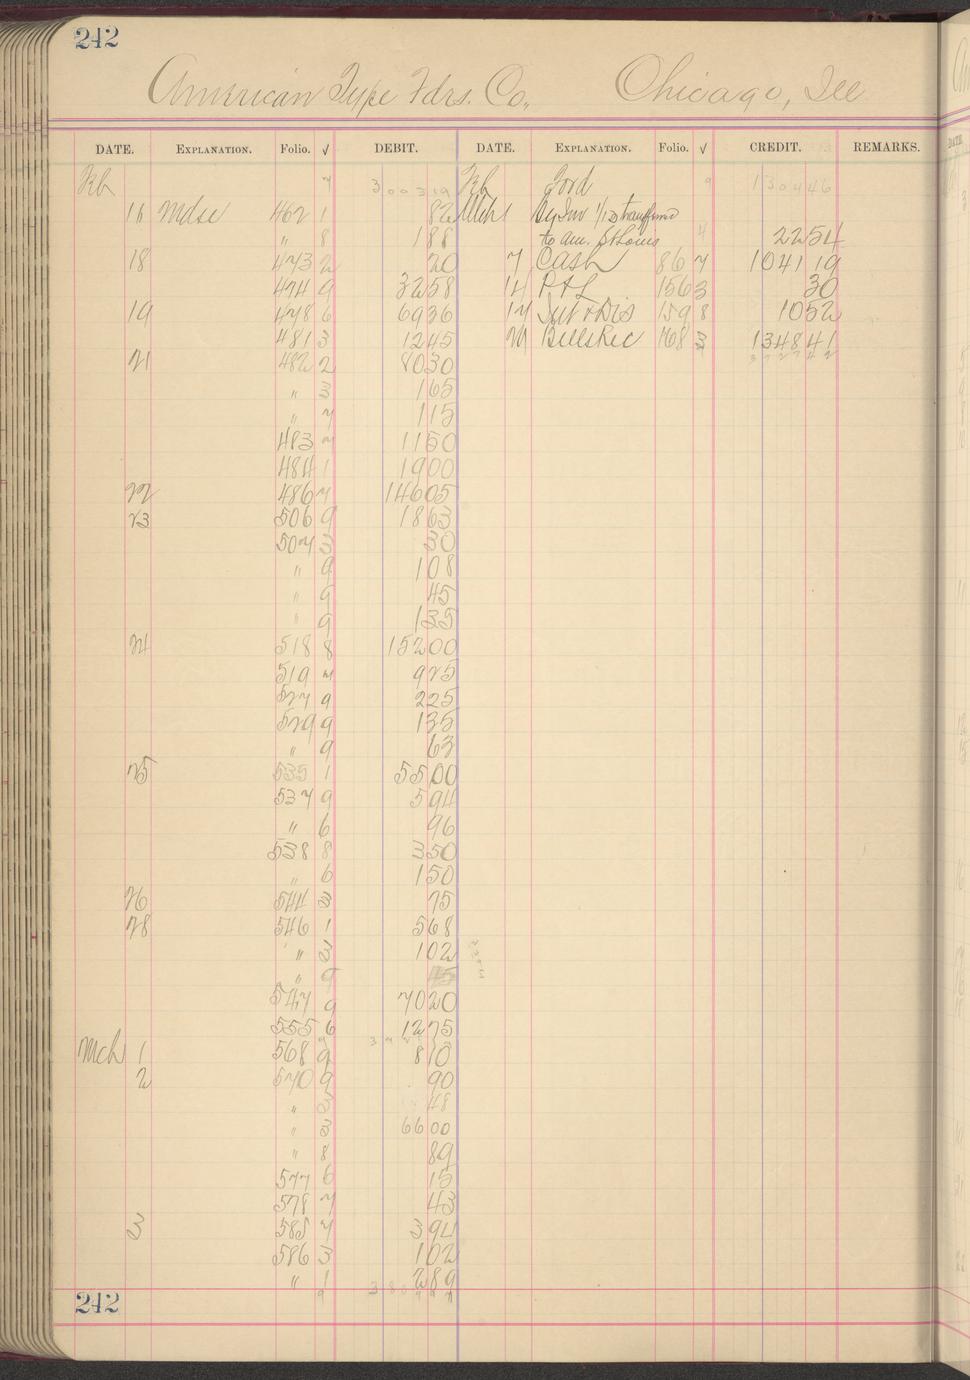 242
American Type Fdrs. Co., Chicago, Ill
DATE. EXPLANATION. Folio. √ DEBIT. DATE. EXPLANATION. Folio. √ CREDIT. REMARKS.
Fb 7 300319 Fb Ford 9 130446
16 Mdse 462 1 82 Mch 1 By Inv 1/13 transferred
" 8 188 to Am. St Louis 4 2254
18 473 2 20 7 Cash 86 7 104119
474 9 3258 14 P & L 156 3 30
19 478 6 6936 17 Int & Dis 159 8 1052
481 3 1245 Bills Rec 168 3 134841
21 482 2 8030
" 3 165
" 7 115
483 7 1150
484 1 1900
22 486 7 14605
23 506 9 1863
507 3 30
" 9 108
" 9 45
" 9 135
24 518 8 15200
519 7 925
527 9 225
529 9 135
" 9 63
25 535 1 5500
537 9 594
" 6 96
538 8 350
" 6 150
26 544 3 75
28 546 1 568
" 3 102
" 9 45
547 9 7020
555 6 1275
Mch 1 568 9 810
2 570 9 90
" 3 48
" 3 6600
" 8 89
577 6 15
578 7 43
3 585 7 394
586 3 102
" 1 289
242